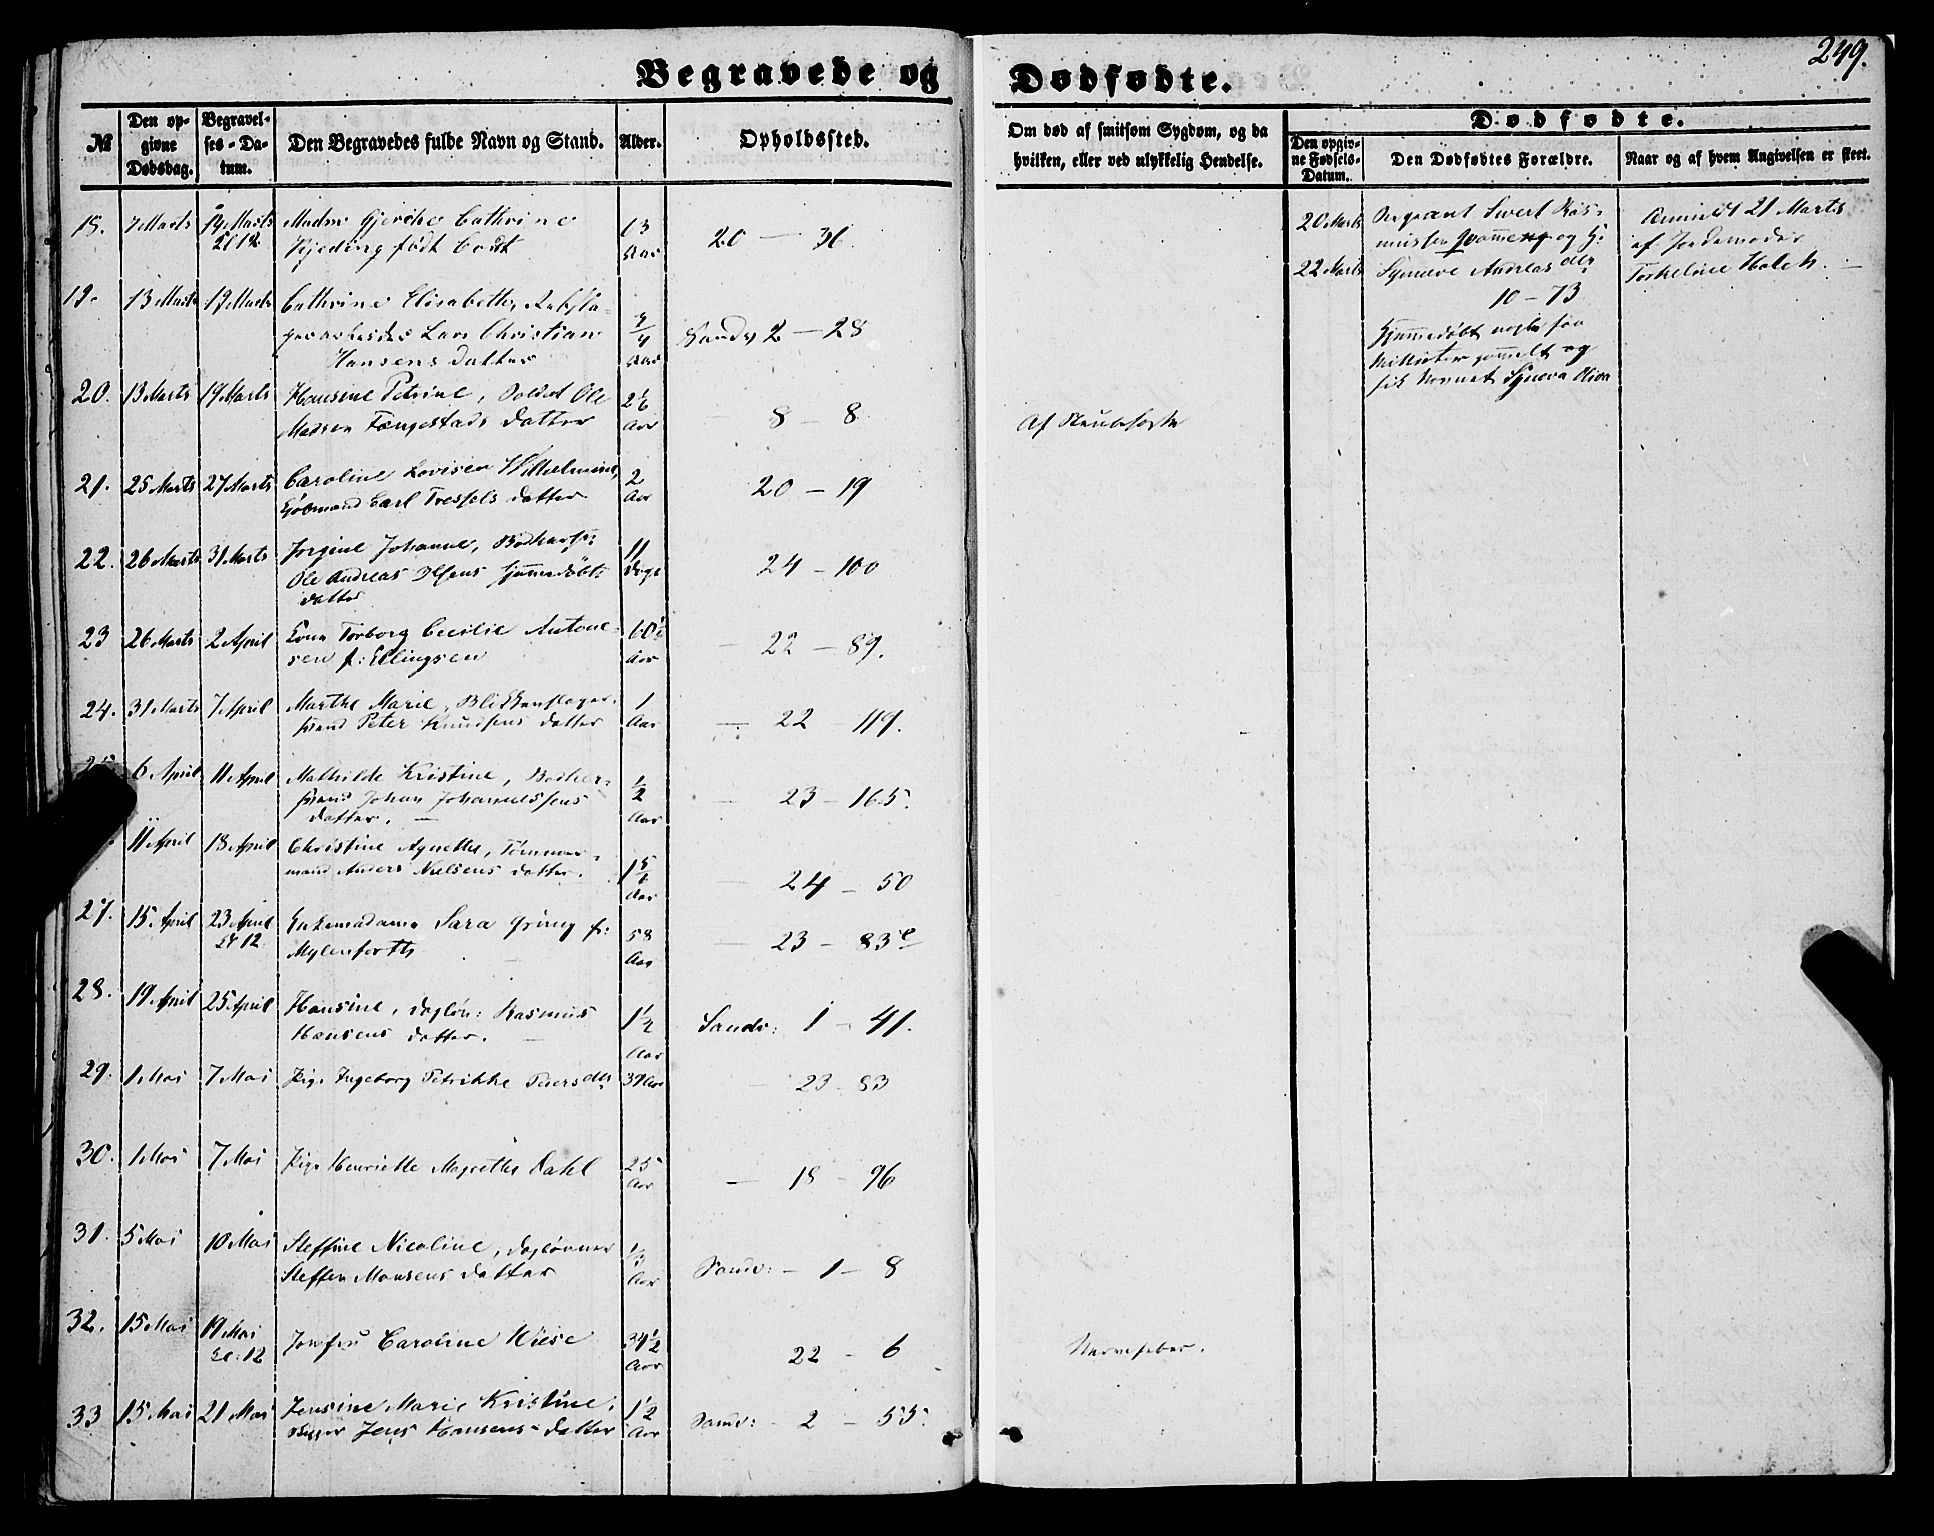 249.
Begravede og Dødfødte.
№
Den opgivne Dødsdag.
Begravelses-Datum.
Den Begravedes fulde Navn og Stand.
Alder.
Opholdssted.
Om død af smitsom Sygdom, og da
hvilken, eller ved ulykkelig Hendelse.
Dødfødte.
Den opgivne Fødsels-Datum.
Den Dødfødtes Forældre.
Naar og af hvem Angivelsen er skeet.
7 Marts 14 Marts Madm Cathrine
født 20 — 31
19. 13 Marts 19 Marts Cathrine Elisabeth,
Lars Christian
Hansens Datter 3/4 Aar Sandv 2 — 28
20. 13 Marts 19 Marts Hansine Petrine, Soldat Ole
Madsen Datter 2 1/6 Aar — 8 — 8
21. 25 Marts 27 Marts Caroline Lovisen Wilhelmine,
Kjøbmand Carl Tressels Datter 2 Aar 20 — 19
22. 26 Marts 31 Marts Jorgine Johanne,
Ole Andreas Olsens hjemmedøbte
Datter 11 Dage 24 — 100
23 26 Marts 2 April Kone Torborg Cecilie Antone-
sen f: Ellingsen Aar — 22 — 89.
24. 31 Marts 7 April Marthe Marie, Blikkenslager-
svend Peter Knudsens Datter 1 Aar — 22 — 119.
6 April 11 April Mathilde Kristine, Bødker-
svend Johan Johannessens
Datter. — 1/2 Aar — 23 — 165.
11 April 18 April Christine Agnethe, Tømmer-
mand Anders Nielsens Datter. 1 5/6 Aar — 24 — 50
27. 15 April 23 April Kl 12 Enkemadame Sara Grung f:
58 Aar — 23 — 83e
28. 19 April 25 April Hansine, dagløn: Rasmus
Hansens Datter. — 1 1/2 Aar Sandv: 1 — 41.
29. 1 Mai 7 Mai Pige Ingeborg Petrikke 39 Aar — 23 — 83
30. 1 Mai 7 Mai Pige Henriette Magrethe Dahl 25 Aar — 18 — 96
31. 5 Mai 10 Mai Steffine Nicoline, daglønner
Steffen Monsens Datter 1/3 Aar Sandv: — 1 — 8
32. 15 Mai 19 Mai Kl: 12 Jomfru Caroline Wiese 34 1/2 Aar 22 — 6
33 15 Mai 21 Mai Jensine Marie Kristine,
Jens Hansens Datter 1 1/2 Aar Sandv: — 2 — 55.
Nervefeber.
20 Marts
22 Marts
Sergeant Sivert Ras-
mussen og H:
Synneve Andreasdtr
10 — 73
Hjemmedøbt nogle faa
Minuter gammelt og
fik Navnet
Anmeldt 21 Marts
af Jordemoder
Torkeline Holck. —